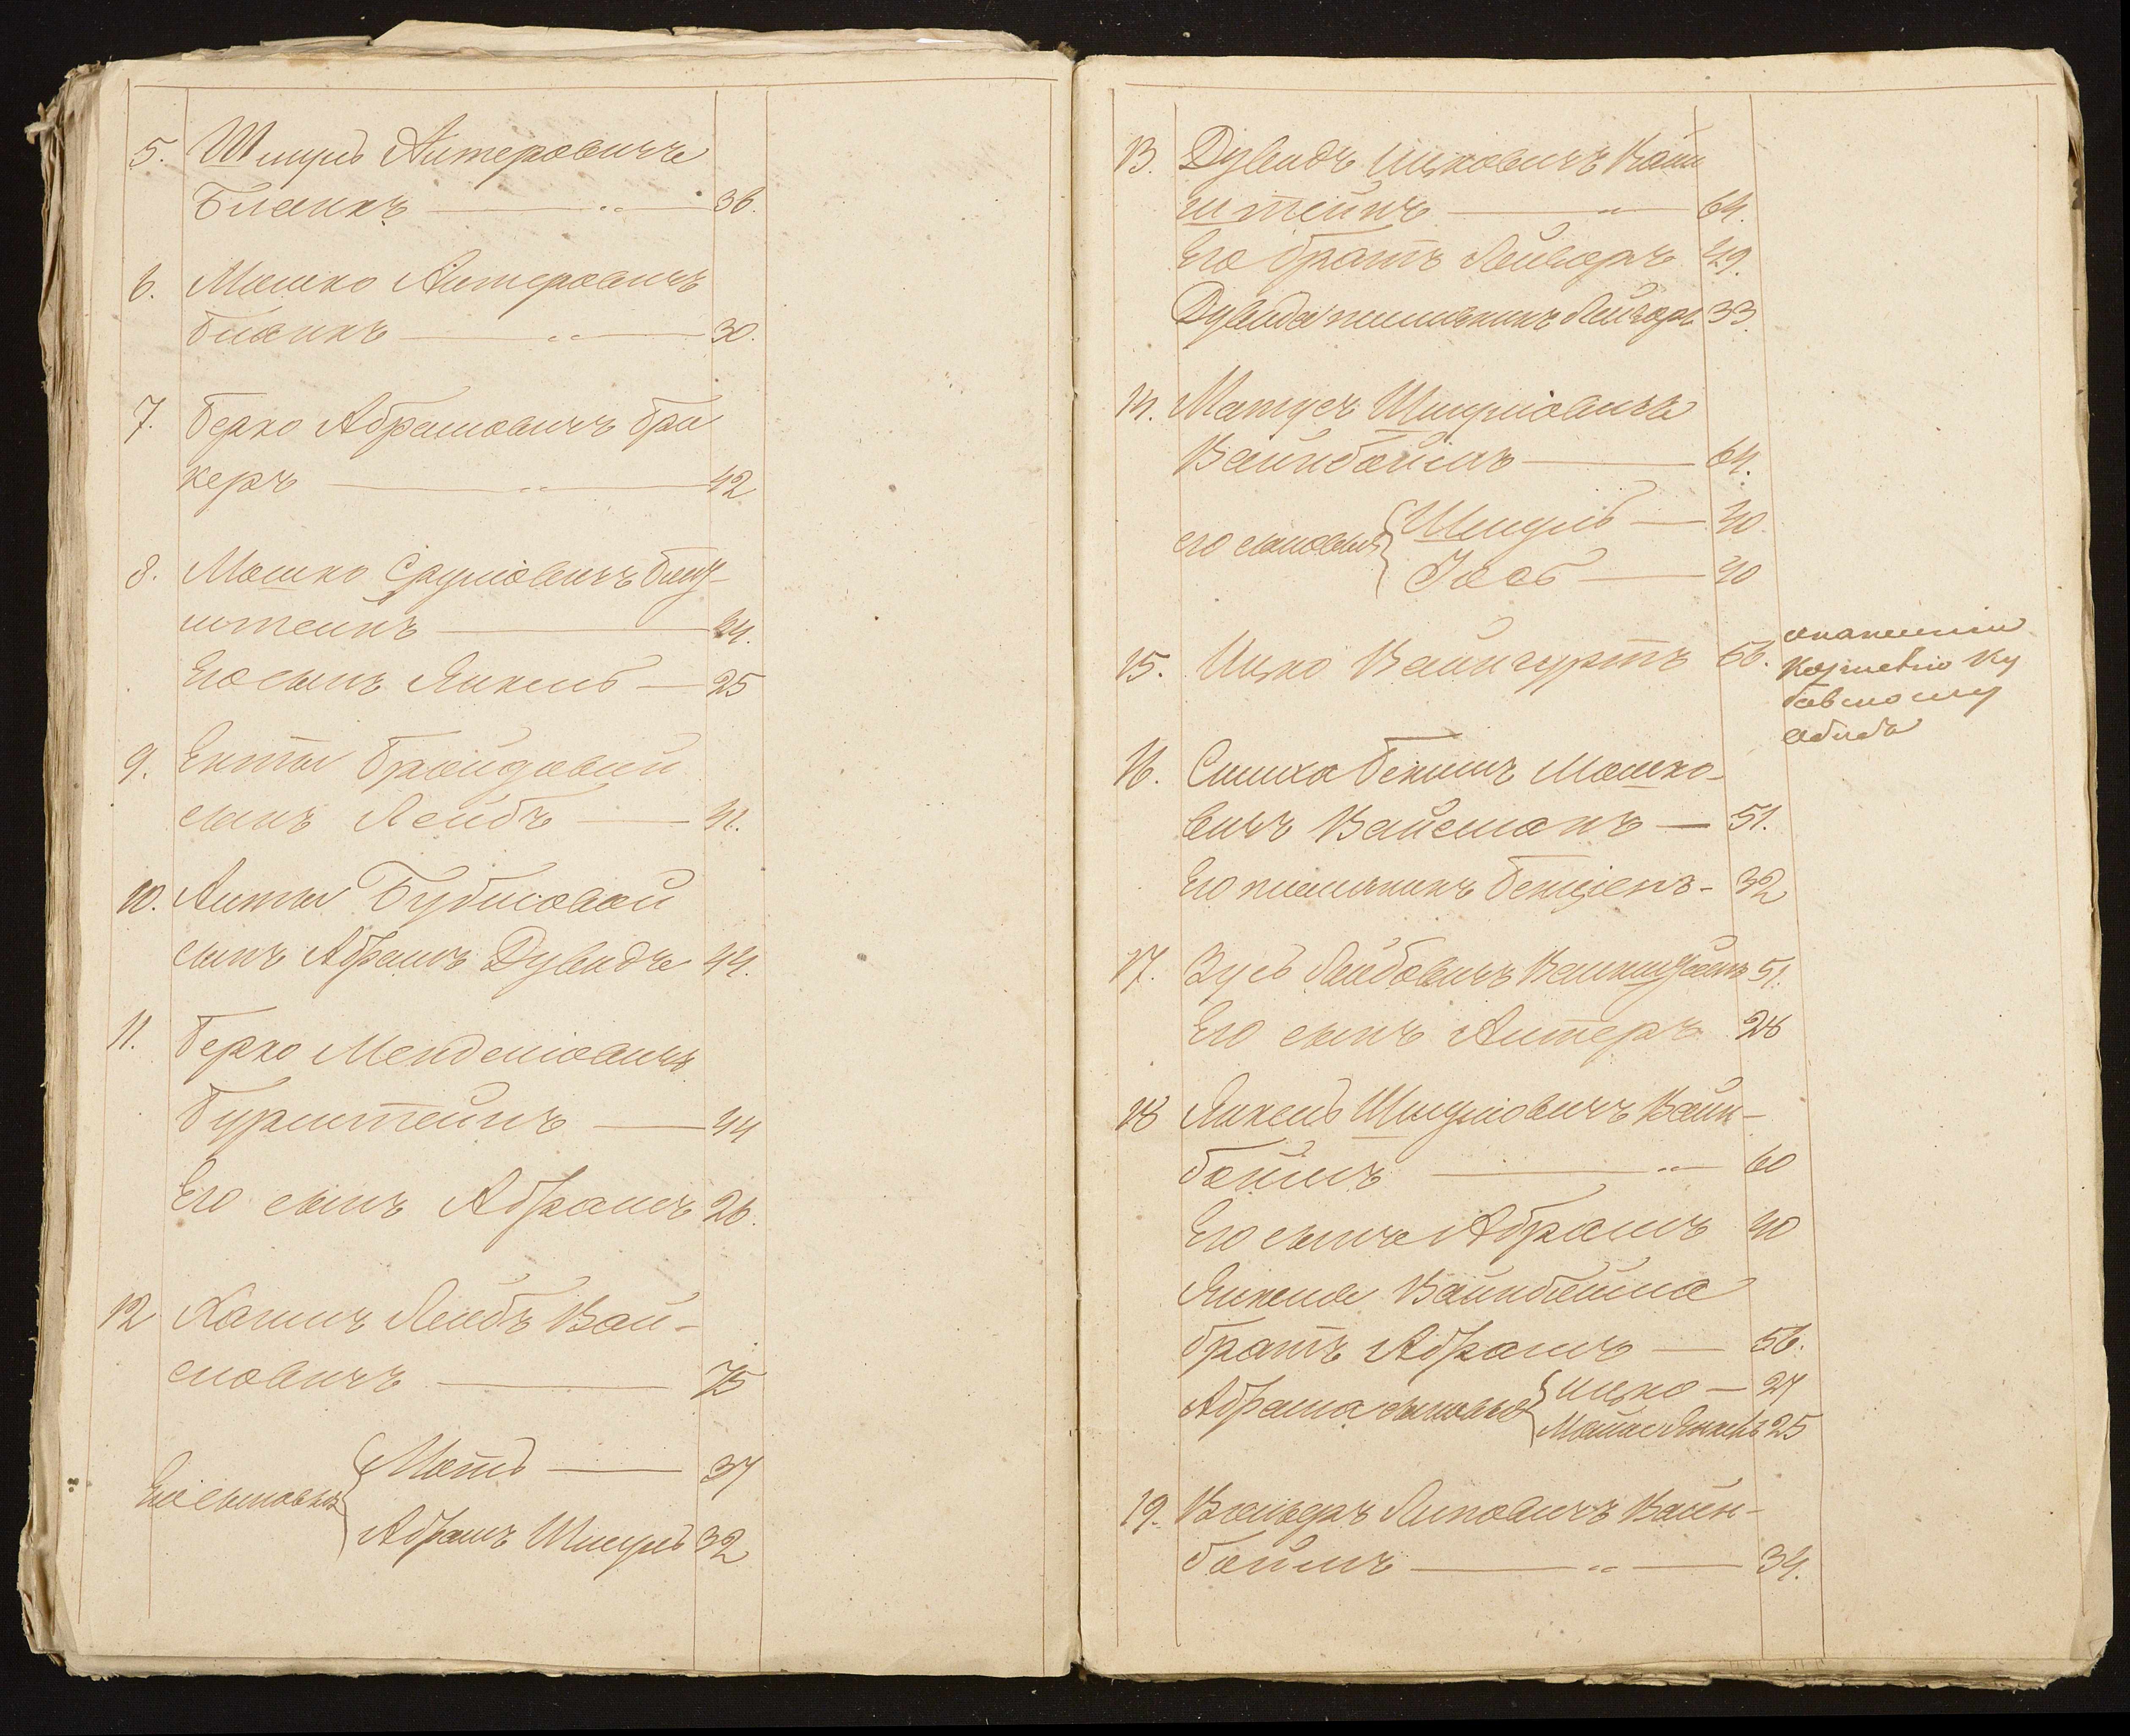 5. Шмуль Алтеровичъ
Бланкъ — „ — 36.
6. Мошко Алтеровичъ
Бланкъ — „ — 30.
7. Берко Абрамовичъ Бри
керъ — „ — 42
8. Мошко Сруліовичъ Блу-
штейнъ — 44.
Его сынъ Янкель — 25
9. Енты Бройдовой
сынъ Лейбъ — 41.
10. Анты Бублиовой
сынъ Абрамъ Дувидъ 44.
11. Берко Менделіовичъ
Бурштейнъ — 44
Его сынъ Абрамъ 26.
12 Хаимъ Лейбъ Вай-
словичъ — 75
Его сыновья { Мотль — 37
Абрамъ Шмуль 32
13. Дувидъ Ицковичъ Вайн
штейнъ — „ — 64.
Его братъ Лейзоръ 49.
Дувида племянникъ Лейзоръ 33.
14. Матусъ Шмуліовичъ
Вайнбоймъ — 64.
его сыновья { Шмуль — 40.
Іось — 40
15. Ицко Вайнгуртъ 66.
Кагальному
16. Симха Бенимъ Мошко-
вичъ Вайсманъ — 51.
Его племянникъ Бенціенъ - 32
17. Зусь Лейбовичъ 51.
Его сынъ Алтеръ 28
18 Янкель Шмуліовичъ Вайн-
боймъ — „ — 60
Его сынъ Абрамъ 40
Янкеля Вайнбойма
братъ Абрамъ — 56.
Абрама сыновья { Ицко — 27
Янкель 25
19. Липовичъ Вайн-
боймъ — „ — 34.